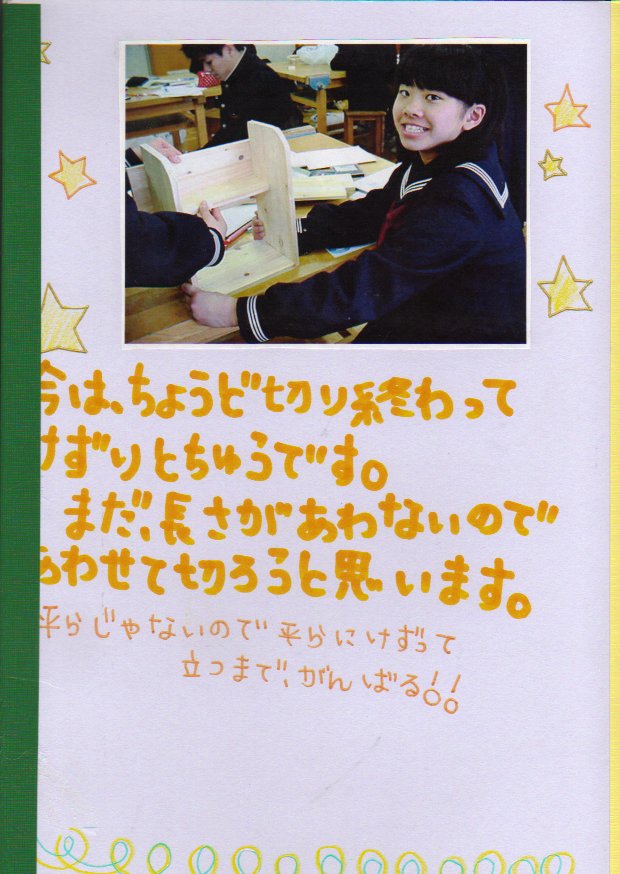 今は、ちょうど切り終わって
けずりとちゅうです。
まだ、長さがあわないので
あわせて切ろうと思います。
平らじゃないので平らにけずって
立つまで、がんばる!!